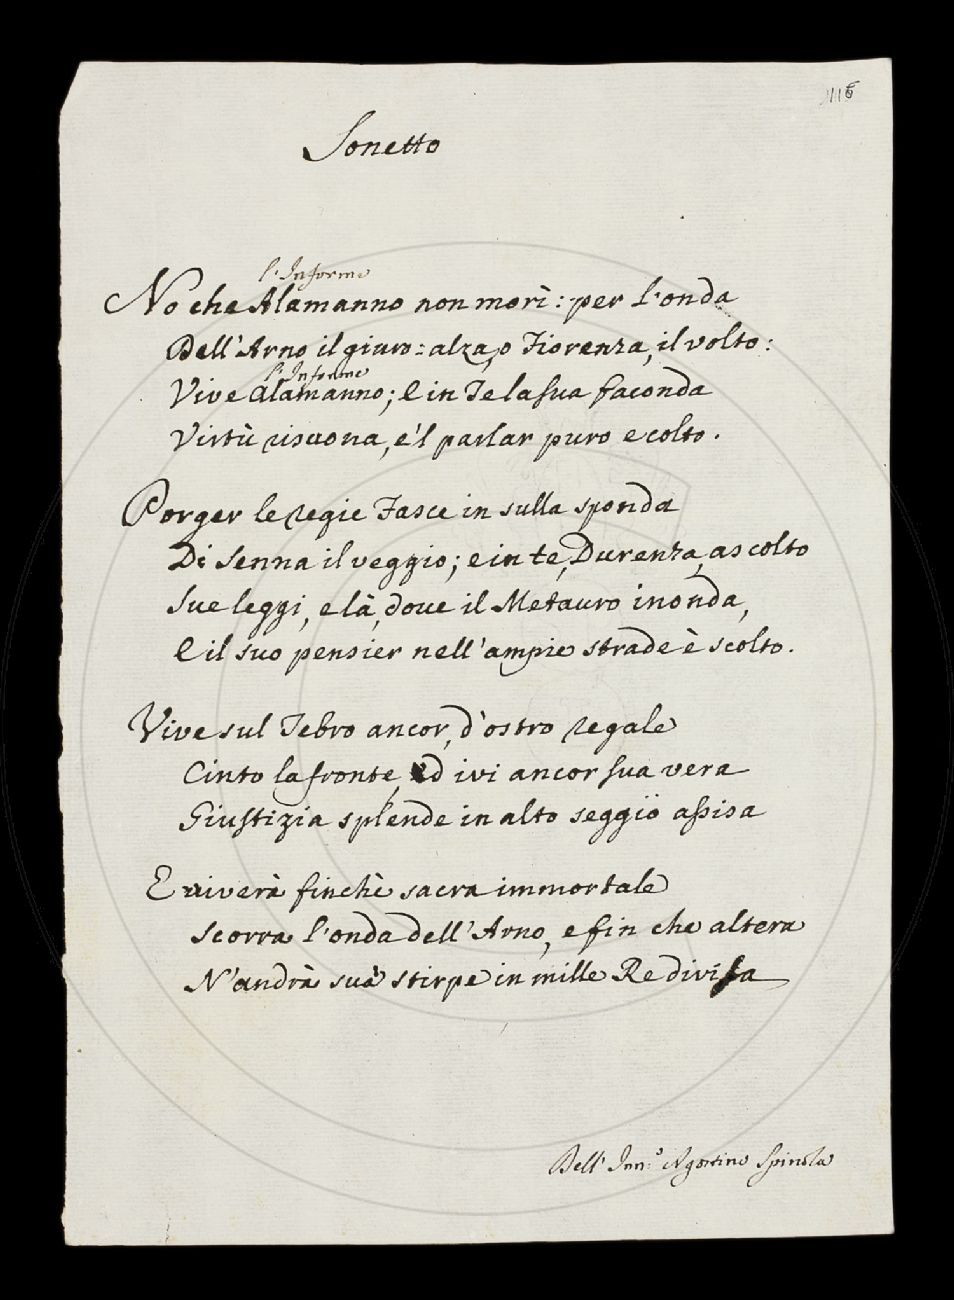 1116
Sonetto
l'Informe
No che Alamanno non morì: per l'onda
Dell'Arno il giuro: alza, o Fiorenza, il volto:
l'Informe
Vive Alamanno; e in Te la sua faconda
Virtù risuona, e'l parlar puro e colto.
Porger le regie Fasce in sulla sponda
Di Senna il veggio; e in te, Durenza, ascolto
Sue leggi, e là, dove il Metauro inonda,
E il suo pensier nell'ampie strade è scolto.
Vive sul Tebro ancor, d'ostro regale
Cinto la fronte, ed ivi ancor sua vera
Giustizia splende in alto seggio assisa
E viverà finchè sacra immortale
Scorra l'onda dell'Arno, e fin che altera
N'andrà sua stirpe in mille Re divisa
Dell' Inn:º Agostino Spinola